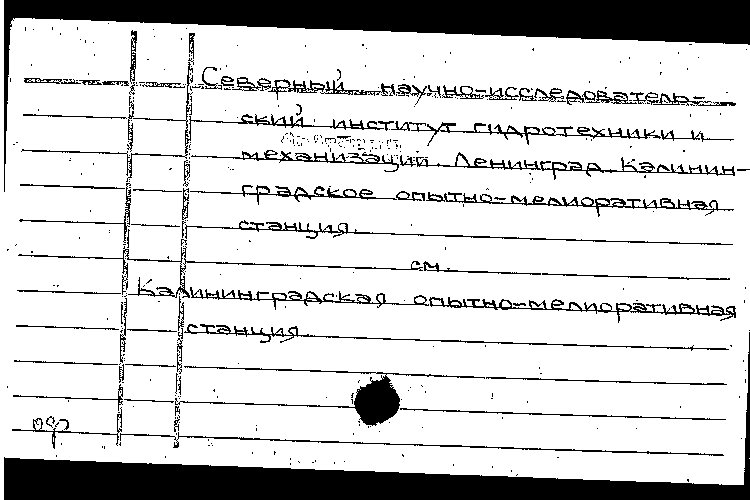 Северный научно-исследователь-
ский институт гидротехники и
механизации. Ленинград. Калинин-
градское опытно-мелиоративная
станция.
см.
Калининградская опытно-мелиоративная
станция